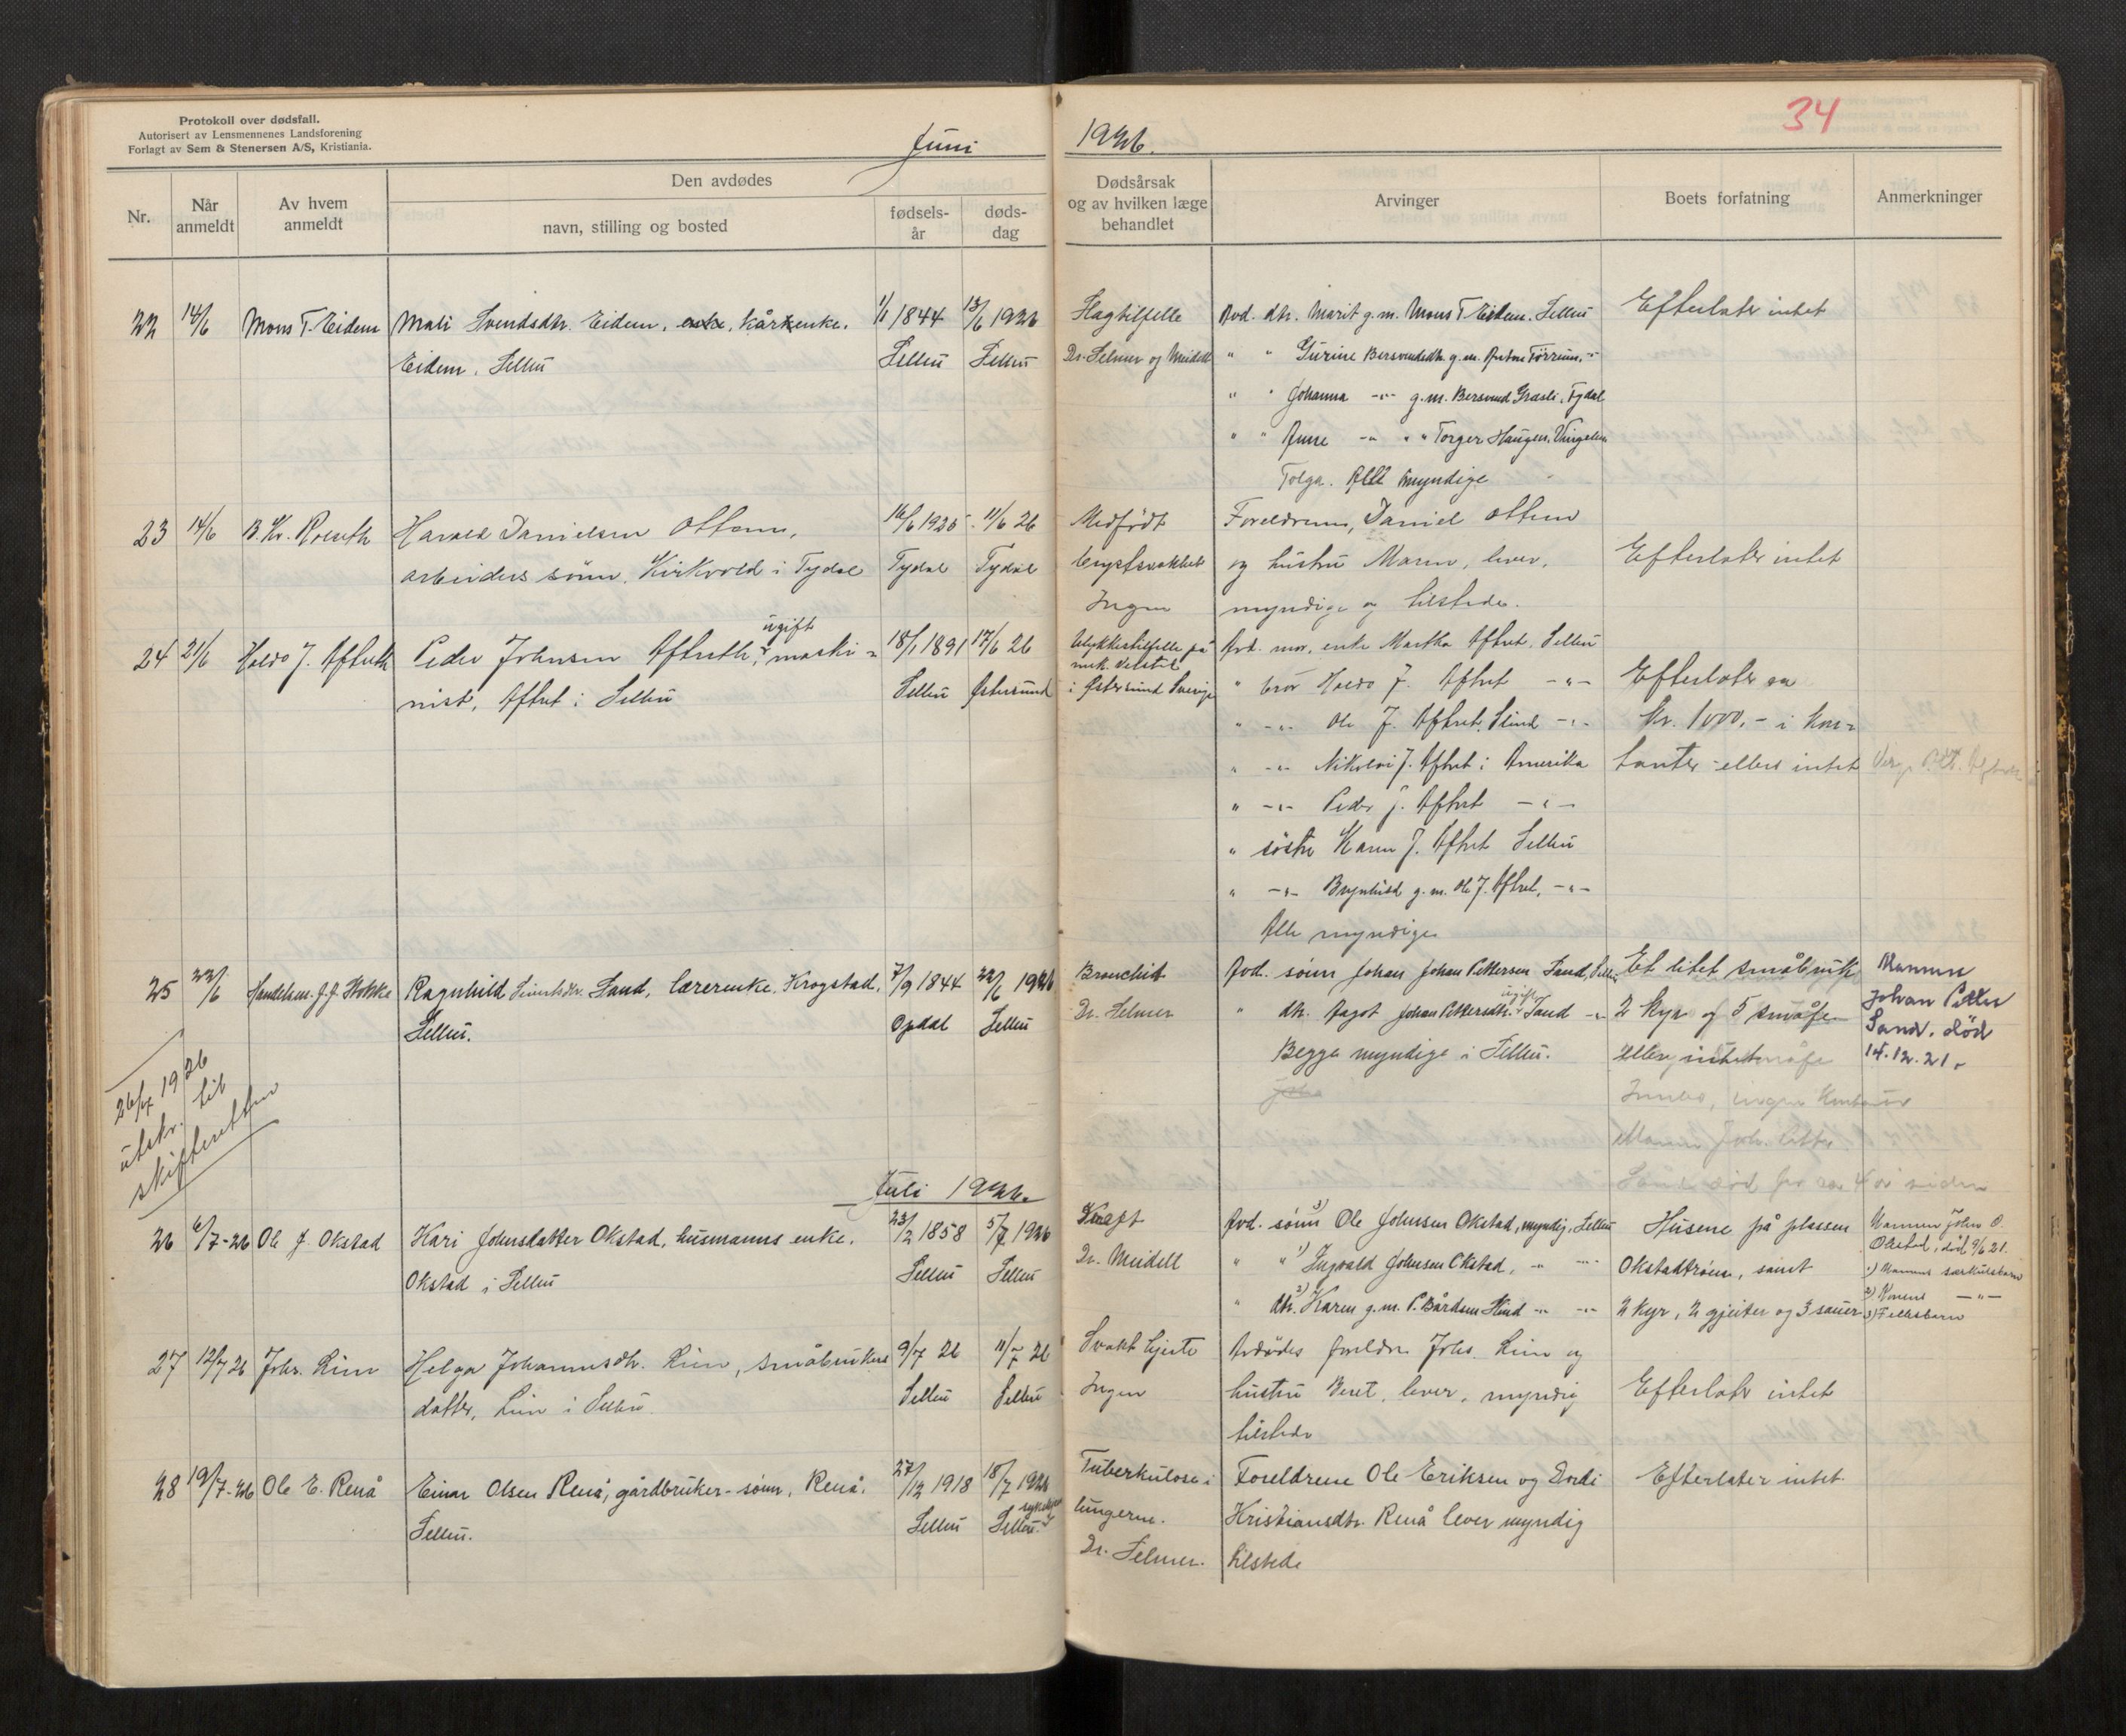 Protokoll over dødsfall.
Autorisert av Lensmennenes Landsforening
Forlagt av Sem & Stenersen A/S, Kristiania.
Juni 1926.
34
Nr.
Når anmeldt
Av hvem anmeldt
Den avdødes
navn, stilling og bosted
fødsels-år
døds-dag
Dødsårsak og av hvilken læge behandlet
Arvinger
Boets forfatning
Anmerkninger
22 14/6 Mons T. Eidem Mali Svendsdtr. Eidem, kårenke. 1/1 1844 13/6 1926 Slagtilfelle Avd. dtr. Marit g.m. Mons T Eidem. Selbu Efterlater intet
Eidem, Selbu Selbu Selbu Dr. Selmer og Meidell " " Gurine Bersvendsdtr. g.m. Anton Förrum. -"-
" " Johanna -"- g.m. Bersvend Græsli, Tydal
" " Anne -"- " " Torger Haugen, Vingelen
Tolga. Alle myndige
23 14/6 B. Kr. Rolseth Harald Danielsen Ottem, 16/6 1925 11/6 26 Medfødt Foreldrene, Daniel Ottem
arbeiders sönn. Kirkvold i Tydal Tydal Tydal brystsvakhet og hustru Maren, lever, Efterlater intet
Ingen myndige og tilstede.
24 21/6 Haldo J. Aftreth Peder Johnsen Aftreth, ugift maski- 18/1 1891 17/6 26 Ulykkestilfelle på Avd. mor, enke Martha Aftret. Selbu
nist, Aftret i Selbu Selbu Østersund mek. verksted i Østersund Sverige " bror Haldo J. Aftret -"- Efterlater ca
" -"- Ole J. Aftret, Slind -"- kr. 1000.- i kon-
" -"- Nikolai J. Aftret i Amerika tanter - ellers intet
" -"- Peder J. Aftret -"-
" søster Karen J. Aftret Selbu
" -"- Brynhild g.m. Ole J. Aftret, -"-
Alle myndige
25 22/6 Handelsm. J. J. Stokke Ragnhild Sivertsdtr. Sand, lærerenke. Krogstad, 7/9 1844 22/6 1926 Bronchit Avd. sönn Johan Johan Pettersen Sand, Selbu Et litet småbruk Mannen
Selbu. Opdal Selbu Dr. Selmer " dtr. Aagot Johan Pettersdtr. ugift Sand -"- 2 kyr og 5 småfe Johan Petter
Begge myndige i Selbu. ellers intet Sand. död
14.12.21.
Innbo, ingen kontanter
Mann Joh. Petter
Sand död for ca 4 år siden
26/7 1926
utskr. til
skifteretten
Juli 1926.
26 6/7-26 Ole J. Okstad Kari Johnsdatter Okstad, husmanns enke. 23/2 1858 5/7 1926 Kræft Avd. sönn 3) Ole Johnsen Okstad, myndig, Selbu Husene på plassen Mannen John O.
Okstad, död 9/6 21.
Okstad i Selbu Selbu Selbu Dr. Meidell " " 1) Ingvald Johnsen Okstad, -"- -"- Okstadtrøen, samt 1) Mannens særkulsbarn
" dtr. 2) Karen g.m. P. Bårdsen Slind -"- -"- 2 kyr, 2 gjeiter og 3 sauer 2) Konens -"-
3) Fellesbarn
27 12/7 26 Johs. Lien Helga Johannesdtr. Lien, småbrukers 9/7 26 11/7 26 Svakt hjerte Avdødes foreldre Johs. Lien og
datter, Lien i Selbu. Selbu Selbu Ingen hustru Beret, lever, myndig Efterlater intet
tilstede
28 19/7-26 Ole E. Renå Einar Olsen Renå, gårdbruker-sønn, Renå. 27/12 1918 18/7 1926 Tuberkulose i Foreldrene Ole Eriksen og Dordi Efterlater intet.
Selbu. Selbu Selbu. lungerne. Kristiansdtr. Renå lever myndig
Dr. Selmer. tilstede